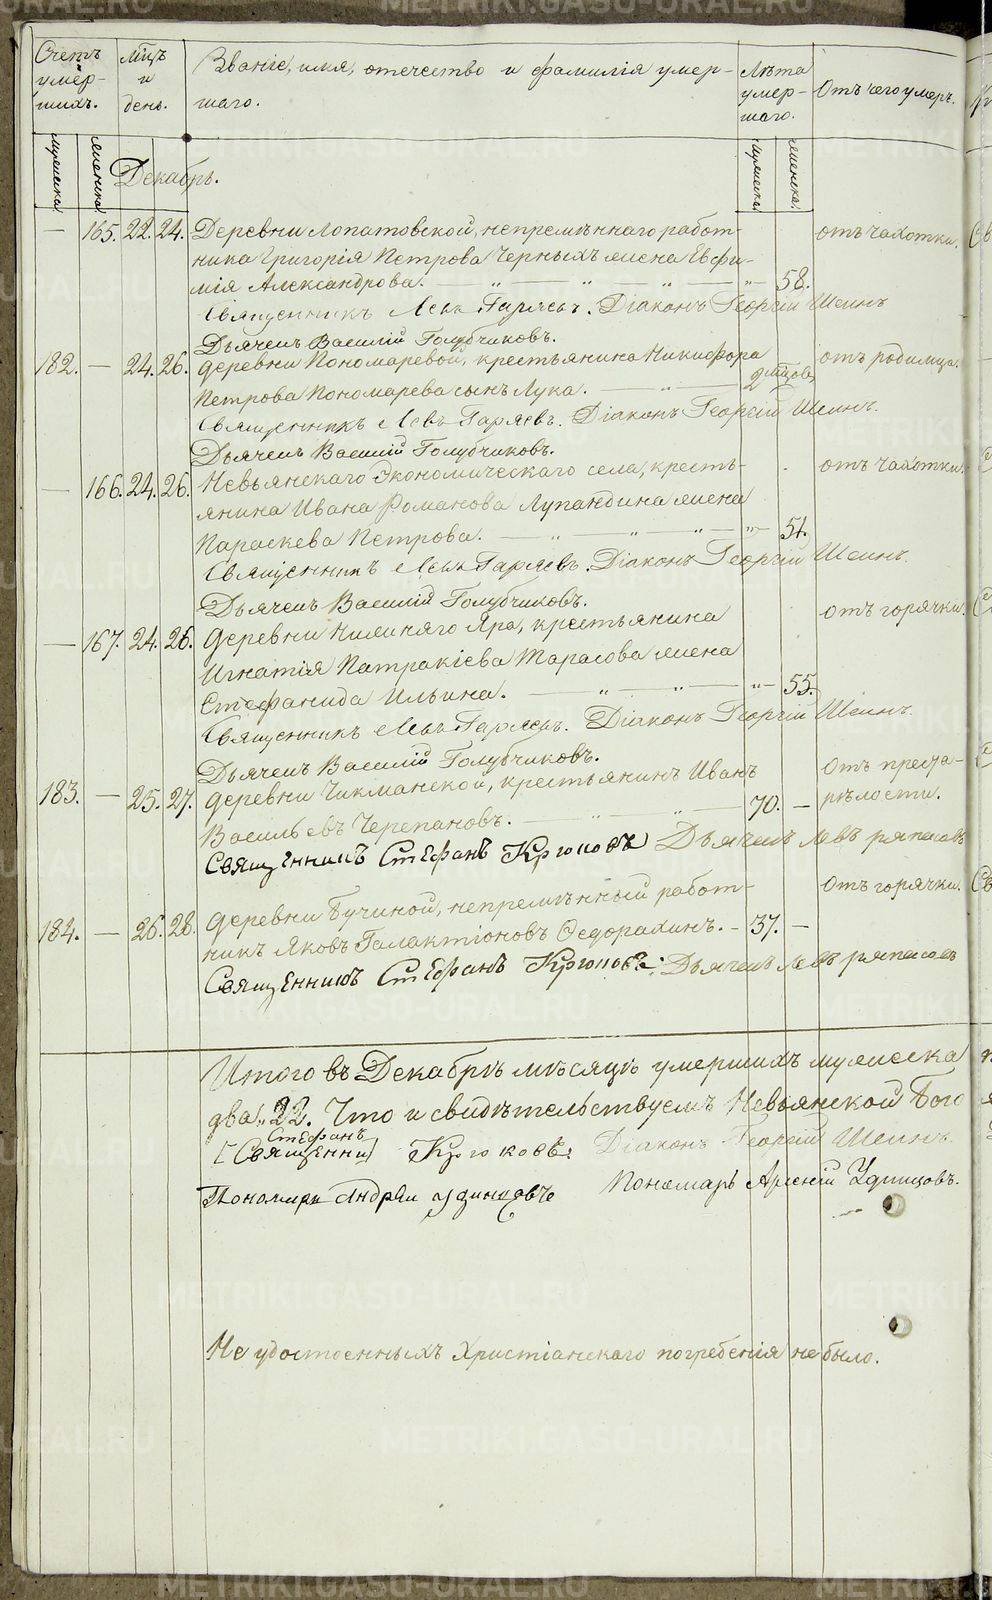 Счетъ умер-шихъ.
Мцъ и день.
Званіе, имя, отечество и фамилія умер-
шаго.
Лѣта умер-шаго.
Отъ чего умеръ.
мужеска.
женска.
мужеска.
женска.
Декабрь.
— 165. 22. 24. Деревни Лопатовской, непремѣннаго работ- отъ чахотки.
ника Григорія Петрова Черныхъ жена Евфи-
мія Александрова. — „ — „ — „ — „ — 58.
Священникъ Левъ Гаряевъ. Діаконъ Георгій Шеинъ
Дьячекъ Василій Голубчиковъ.
182. — 24. 26. деревни Пономаревой, крестьянина Никифора отъ родимца.
Петрова Пономарева сынъ Лука. — „ — 2 мѣцов.
Священникъ Левъ Гаряевъ. Діаконъ Георгій Шеинъ.
Дьячекъ Василій Голубчиковъ.
— 166. 24. 26. Невьянскаго Экономическаго села, кресть- отъ чахотки.
янина Ивана Романова Лупандина жена
Параскева Петрова. — „ — „ — „ — „ — 51.
Священникъ Левъ Гаряевъ. Діаконъ Георгій Шеинъ.
Дьячекъ Василій Голубчиковъ.
— 167. 24. 26. деревни Нижняго Яра, крестьянина отъ горячки.
Игнатія Патракіева Тарасова жена
Стефанида Ильина. — „ — „ — „ — 55.
Священникъ Левъ Гаряевъ. Діаконъ Георгій Шеинъ.
Дьячекъ Василій Голубчиковъ.
183. — 25. 27. деревни Чикманской, крестьянинъ Иванъ Отъ преста-
Васильевъ Черепановъ. — „ — „ — 70. — рѣлости.
Священникъ Стефанъ Крюковъ Дьячекъ Левъ Ряпасовъ
184. — 26. 28. деревни Бучиной, непремѣнный работ- Отъ горячки.
никъ Яковъ Галактіоновъ Федорахинъ. — 37. —
Священникъ Стефанъ Крюковъ. Дьячекъ Левъ Ряпасовъ
Итого въ Декабрѣ мѣсяцѣ умершихъ мужеска
два „ 22. Что и свидѣтельствуемъ Невьянской Бого
Стефанъ
[Священни] Крюковъ: Діаконъ Георгій Шеинъ.
Пономарь Андрей Удинцовъ Пономарь Арсеній Удинцовъ.
Не удостоенныхъ Христіанскаго погребенія не было.
METRIKI.GASO-URAL.RU